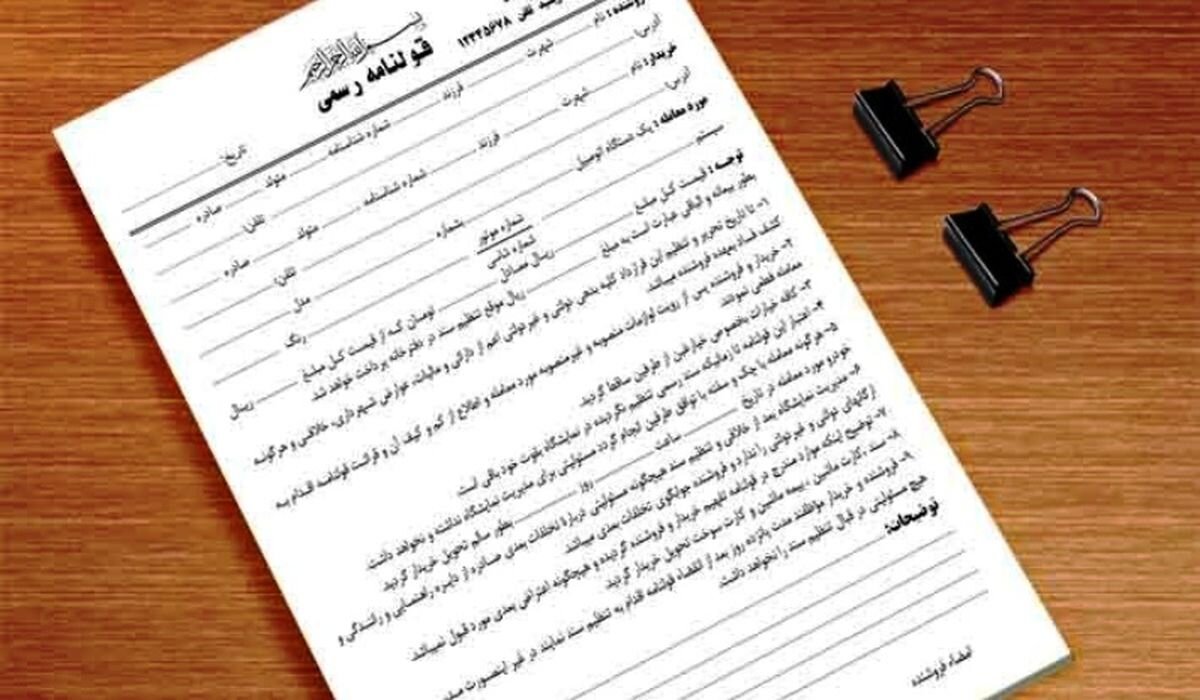 بسم الله الرحمن الرحیم
قولنامه رسمی
تلفن ۱۲۳۴۵۶۷۸
تاریخ:
فروشنده: نام شهرت فرزند شماره شناسنامه متولد صادره
آدرس: تلفن:
خریدار: نام شهرت فرزند شماره شناسنامه متولد صادره
آدرس: تلفن:
مورد معامله: یک دستگاه اتومبیل بشماره مدل
سیستم شماره موتور شماره شاسی رنگ
توجه: قیمت کل مبلغ ریال معادل تومان که از قیمت کل مبلغ ریال
بطور بیعانه و الباقی عبارت است به مبلغ ریال موقع تنظیم سند در دفترخانه پرداخت خواهد شد.
۱- تا تاریخ تحریر و تنظیم این قرارداد کلیه بدهی دولتی و غیردولتی اعم از دارائی و مالیات، عوارض شهرداری، خلافی و هرگونه
کشف فساد بعهده فروشنده میباشد.
۲- خریدار و فروشنده پس از رویت لوازمات منصوبه و غیرمنصوبه مورد معامله و اطلاع از کم و کیف آن و قرائت قولنامه اقدام به
معامله قطعی نمودند.
۳- کافه خیارات بخصوص خیارغبن از طرفین ساقط گردید.
۴- اعتبار این قولنامه تا زمانیکه سند رسمی تنظیم نگردیده در نمایشگاه بقوت خود باقی است.
۵- هرگونه معامله با چک و سفته با توافق طرفین انجام گردد مسئولیتی برای مدیریت نمایشگاه نداشته و نخواهد داشت.
خودرو مورد معامله در تاریخ ساعت روز بطور سالم تحویل خریدار گردید.
۶- مدیریت نمایشگاه بعد از خلافی و تنظیم سند هیچگونه مسئولیتی درباره تخلفات بعدی صادره از دایره راهنمایی و رانندگی و
ارگانهای دولتی و غیردولتی را ندارد و فروشنده جوابگوی تخلفات بعدی میباشد.
۷- توضیح اینکه موارد مندرج در قولنامه تفهیم خریدار و فروشنده گردیده و هیچگونه اعتراض بعدی مورد قبول نمیباشد.
۸- سند، کارت ماشین، بیمه ماشین و کارت سوخت تحویل خریدار گردید.
۹- فروشنده و خریدار مؤظفند مدت پانزده روز بعد از انقضاء قولنامه اقدام به تنظیم سند نمایند در غیر اینصورت
هیچ مسئولیتی در قبال تنظیم سند را نخواهد داشت.
توضیحات:
امضاء فروشنده